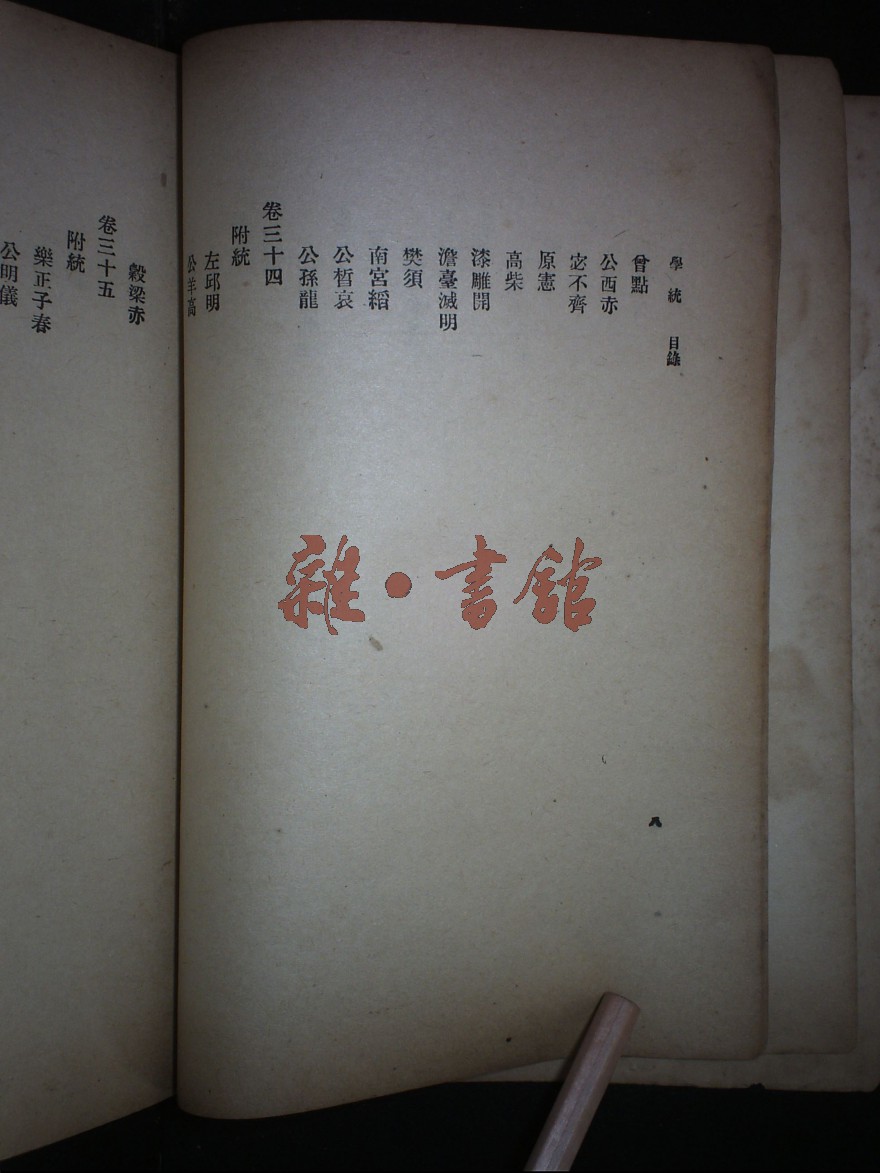 學統 目錄
曾點
公西赤
宓不齊
原憲
高柴
漆雕開
澹臺滅明
樊須
南宮縚
公晳哀
公孫龍
卷三十四
附統
左邱明
公羊高
八
穀梁赤
卷三十五
附統
樂正子春
公明儀
雜·書館